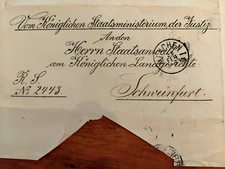 Vom Königlichen Staatsministerium der Justiz
An den
Herrn Staatsanwalt
am Königlichen Landgerichte
R. S.
No 2443
Schweinfurt.
MÜNCHEN